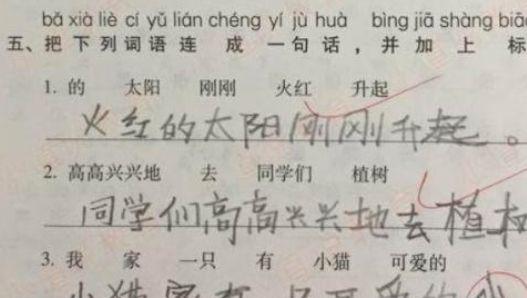 bǎ xià liè cí yǔ lián chéng yí jù huà bìng jiā shàng biāo
五、把下列词语连成一句话，并加上标
1. 的 太阳 刚刚 火红 升起
火红的太阳刚刚升起。
2. 高高兴兴地 去 同学们 植树
同学们高高兴兴地去植树
3. 我 家 一只 有 小猫 可爱的
小猫家有 只可爱的小